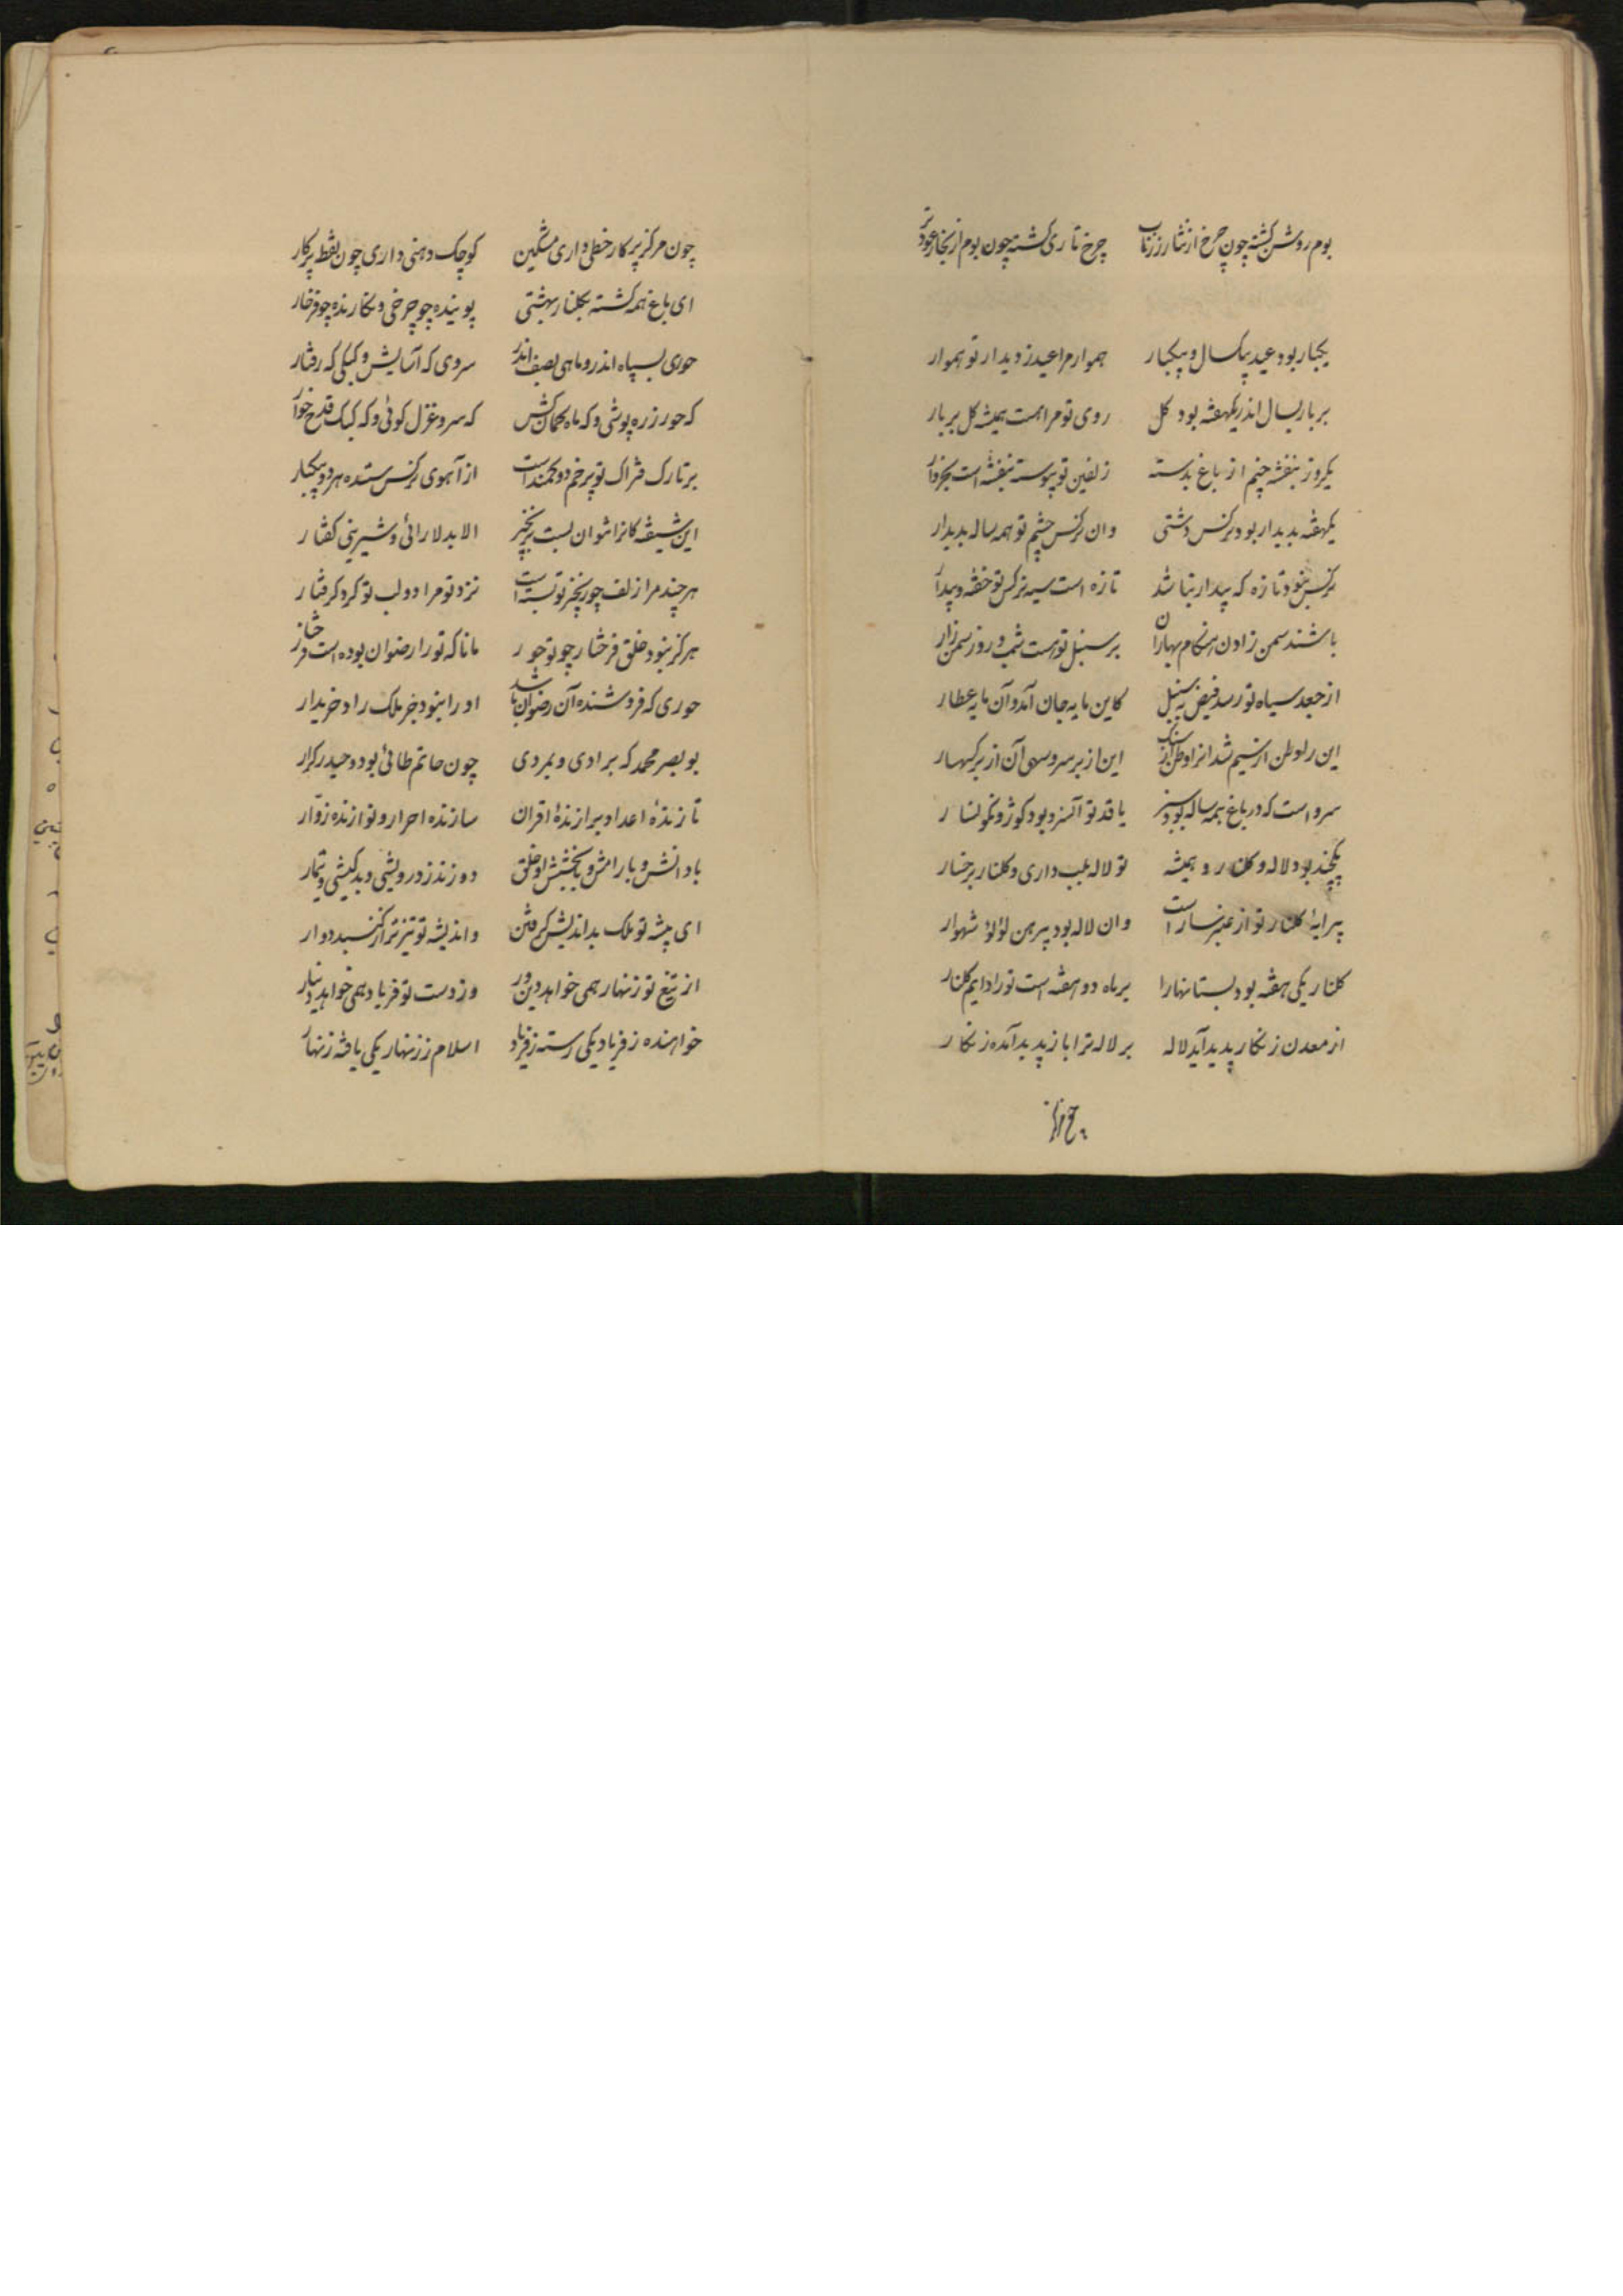 بوم روشن کشته چون چرخ از نثار زر ناب چرخ تاری کشته چون بوم از بخار عود تر
یکبار بود عید بیکسال و بیکبار هموار مرا عید ز دیدار تو هموار
بر بار بسال اندر یکهفته بود کل روی تو مرا هست همیشه کل بر بار
یکروز بنفشه چنم از باغ بدسته زلفین تو پیوسته بنفشه است بخروار
یکهفته پدیدار بود نرکس دشتی وان نرکس چشم تو همه ساله پدیدار
نرکس نبود تازه که بیدار نباشد تازه است سیه نرکس تو خفته و بیدار
باشند سمن زادن هنکام بهاران بر سنبل تو هست شب و روز سمن زار
از جعد سیاه تو رسد فیض به سنبل کاین مایه جان آمد و آن مایه عطار
این را وطن از سیم شد انرا وطن از سنک این از بر سرو سهی آن از بر کهسار
سرو است که در باغ همه ساله بود سبز با قد تو آنسرو بود کوژ و نکونسار
یکچند بود لاله و کلنار و همیشه تو لاله بلب داری و کلنار برخسار
پیرایهٔ کلنار تو از عنبر ساراست وان لاله بود پیرهن لؤلؤ شهوار
کلنار یکی هفته بود بستانها را بر ماه دو هفته است تو را دایم کلنار
از معدن زنکار پدید آید لاله بر لاله ترا باز پدید آمده زنکار
چون مرکز پرکار خطی داری مشکین کوچک دهنی داری چون نقطه پرکار
ای باغ همه کشته بکلنار بهشتی پوینده چو چرخی و نکارنده چو فرخار
حوری بسپاه اندر و ماهی بصف اندر سروی که آسایش و کبکی که رفتار
که حور زره پوشی و که ماه کمان کش که سرو غزل کوئی و که کبک قدح خوار
بر تارک فتراک تو پر خم دو کمند است از آهوی نرکس ستده هر دو بیکبار
این شیفته کانرا نتوان بست بزنجیر الا بدلارائی و شیرینی کفتار
هر چند مرا زلف چو زنجیر تو بسته است نزد تو مرا دو لب تو کرد کرفتار
هرکز نبود خلق فرخار چو تو حور مانا که تو را رضوان بوده است فرخار
حوری که فروشنده آن رضوان باشد او را نبود جز ملک راد خریدار
بونصر محمد که برادی و بمردی چون حاتم طائی بود و حیدر کرار
تازندهٔ اعدا و برازندهٔ اقران سازنده احرار و نوازنده زوار
با دانش و با رامش و با بخشش او خلق دورند ز درویشی و بدکیشی و تیمار
ای پیشه تو ملک بداندیش کرفتن و اندیشه تو تیزتر از کنبد دوار
از تیغ تو زنهار همی خواهد دین ور وز دست تو فریاد همی خواهد دینار
خواهنده ز فریاد یکی رسته ز فریاد اسلام ز زنهار یکی یافته زنهار